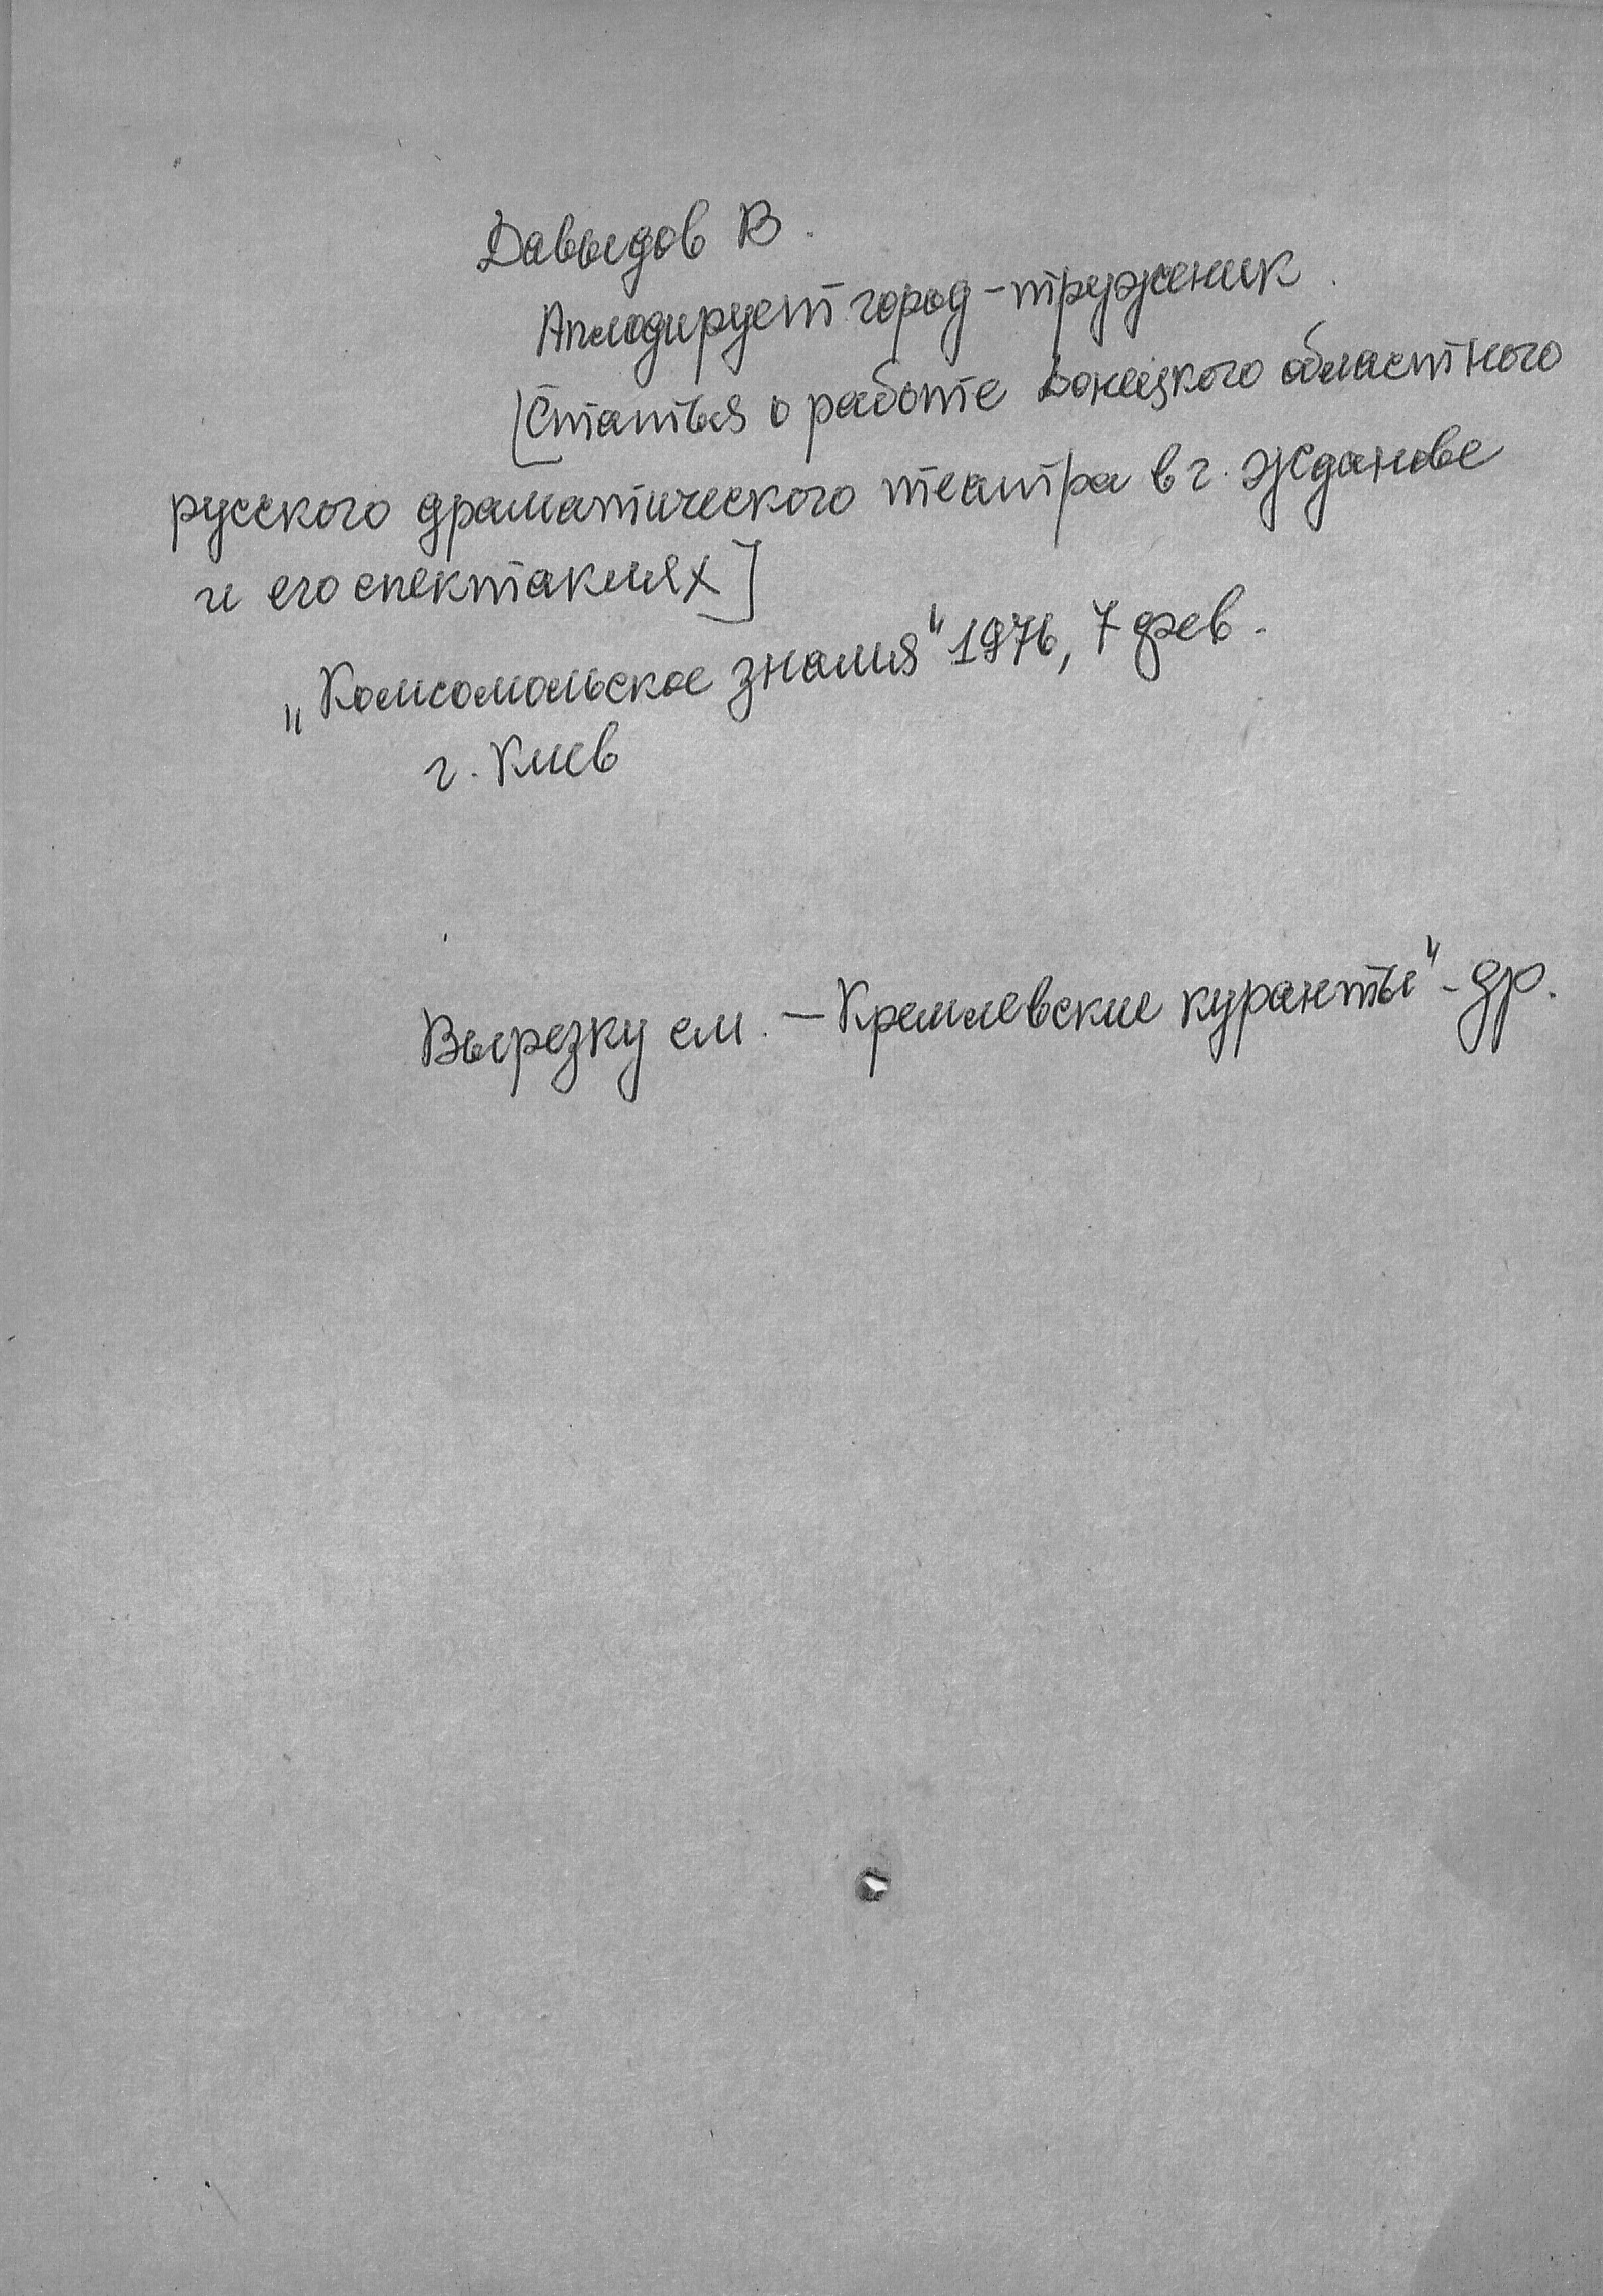 Давыдов В.
Аплодирует город-труженик.
[Статья о работе Донецкого областного
русского драматического театра в г. Жданове
и его спектаклях]
„Комсомольское знамя" 1976, 7 фев.
г. Киев
Вырезку см. – Кремлевские куранты" - др.